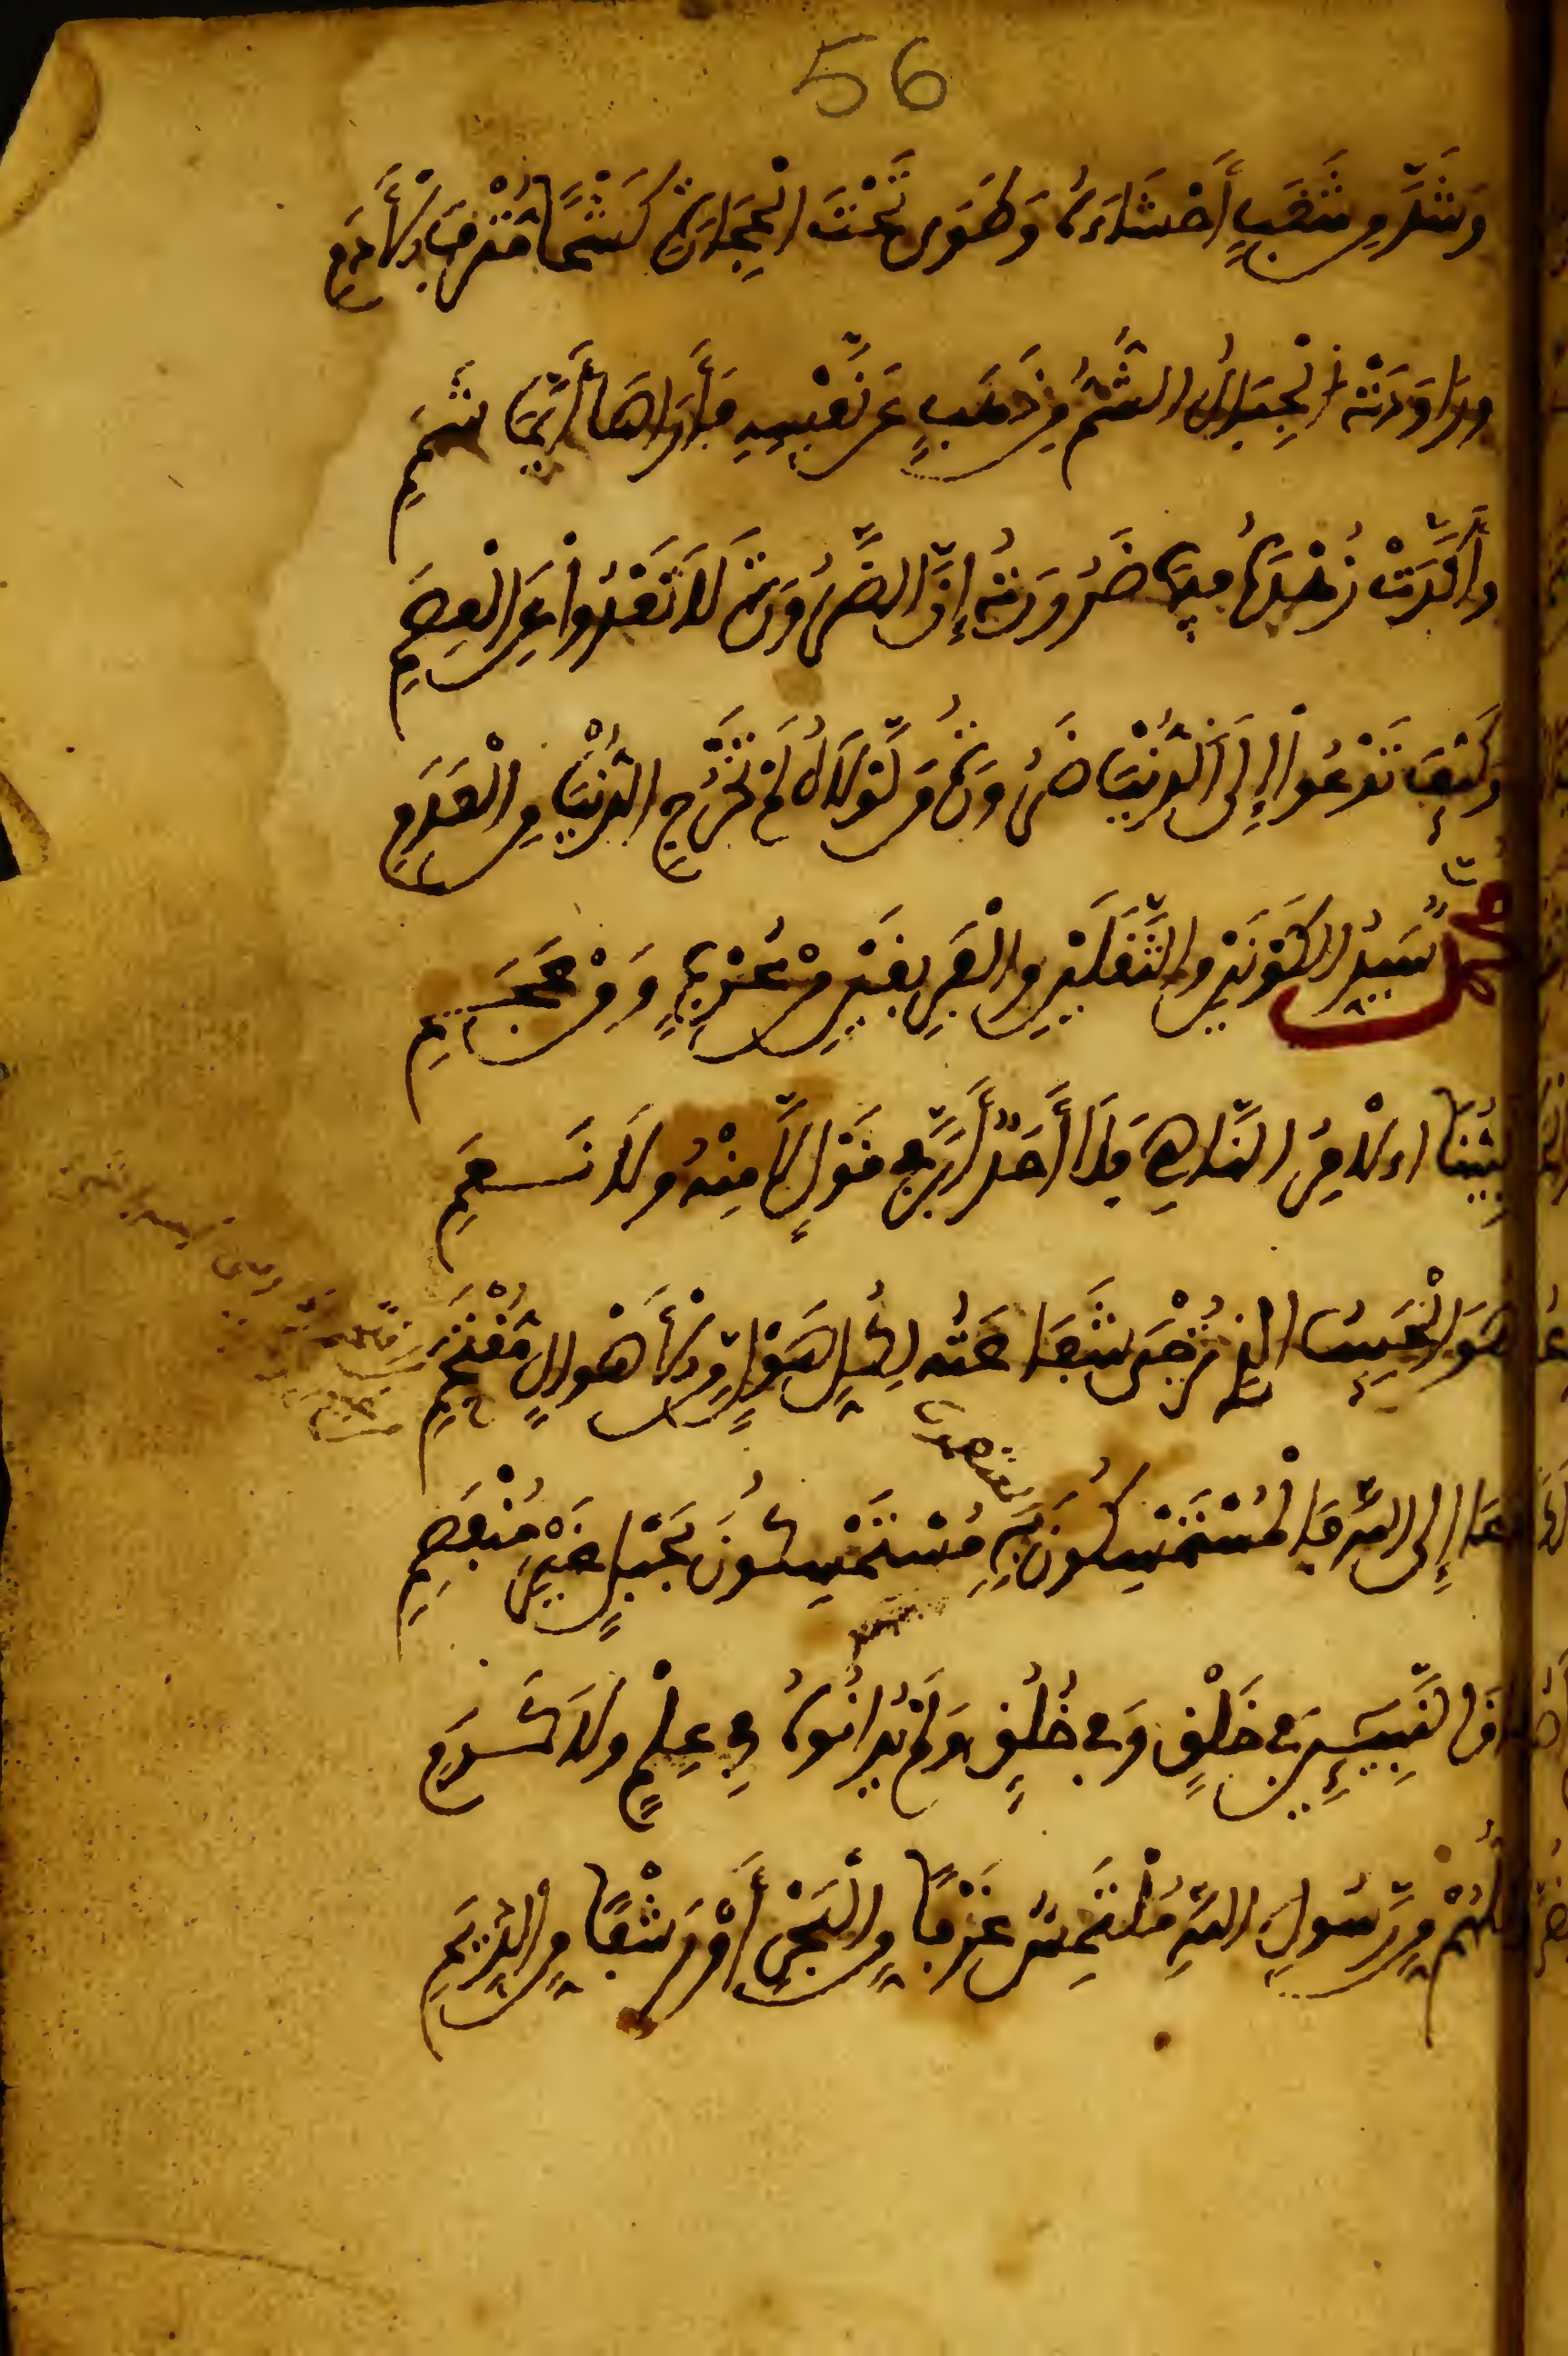 56
وَشَدَّ مِن سَغَبٍ أَحْشَاءَهُ وَطَوَى تَحْتَ الْحِجَارَةِ كَشْحًا مُتْرَفَ الْأَدَمِ
وَرَاوَدَتْهُ الْجِبَالُ الشُّمُّ مِن ذَهَبٍ عَن نَّفْسِهِ فَأَرَاهَا أَيَّمَا شَمَمِ
وَأَكَّدَتْ زُهْدَهُ فِيهَا ضَرُورَتُهُ إِنَّ الضَّرُورَةَ لَا تَعْدُوا عَلَى الْعِصَمِ
وَكَيْفَ تَدْعُوا إِلَى الدُّنْيَا ضَرُورَةُ مَن لَّوْلَاهُ لَمْ تَخْرُجِ الدُّنْيَا مِنَ الْعَدَمِ
مُحَمَّدٌ سَيِّدُ الْكَوْنَيْنِ وَالثَّقَلَيْنِ وَالْفَرِيقَيْنِ مِنْ عُرْبٍ وَمِنْ عَجَمِ
نَبِيُّنَا الْآمِرُ النَّاهِي فَلَا أَحَدٌ أَبَرَّ فِي قَوْلِ لَا مِنْهُ وَلَا نَعَمِ
هُوَ الْحَبِيبُ الَّذِي تُرْجَى شَفَاعَتُهُ لِكُلِّ هَوْلٍ مِّنَ الْأَهْوَالِ مُقْتَحَمِ
دَعَا إِلَى اللَّهِ فَالْمُسْتَمْسِكُونَ بِهِ مُسْتَمْسِكُونَ بِحَبْلٍ غَيْرِ مُنْفَصِمِ
فَاقَ النَّبِيئِينَ فِي خَلْقٍ وَفِي خُلُقٍ وَلَمْ يُدَانُوهُ فِي عِلْمٍ وَلَا كَرَمِ
وَكُلُّهُمْ مِّن رَّسُولِ اللَّهِ مُلْتَمِسٌ غَرْفًا مِّنَ الْبَحْرِ أَوْ رَشْفًا مِّنَ الدِّيَمِ